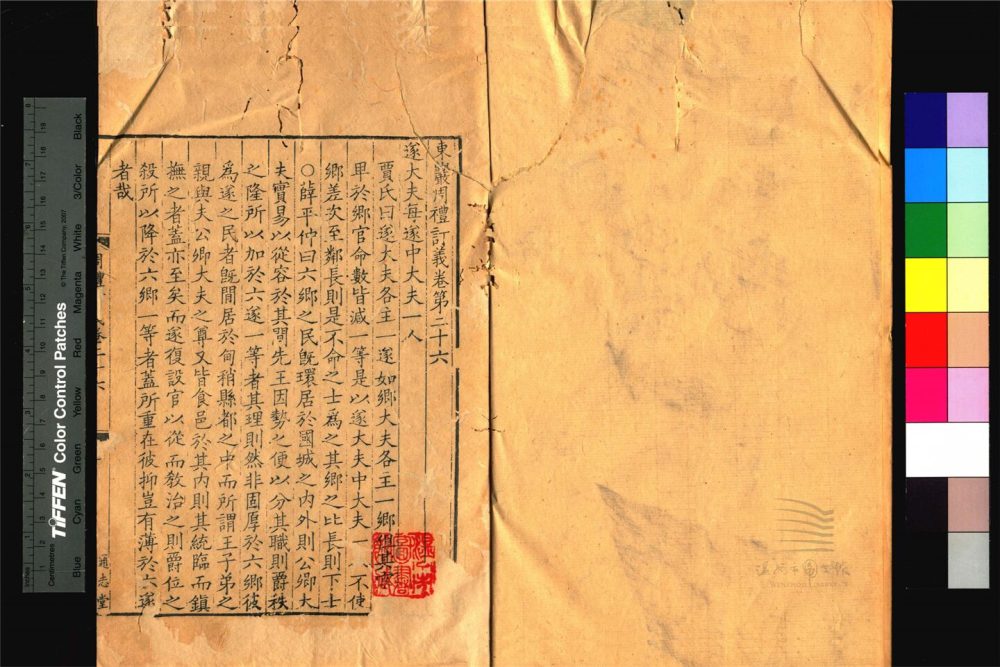 東巖周禮訂義卷第二十六
遂大夫每遂中大夫一人
賈氏曰遂大夫各主一遂如鄉大夫各主一鄉
卑於鄉官命數皆減一等是以遂大夫中大夫一人不使
鄉差次至鄰長則是不命之士爲之其鄉之比長則下士
○薛平仲曰六鄉之民旣環居於國城之內外則公卿大
夫實易以從容於其間先王因勢之便以分其職則爵秩
之隆所以加於六遂一等者其理則然非固厚於六鄉彼
爲遂之民者旣閒居於甸稍縣都之中而所謂王子弟之
親與夫公卿大夫之尊又皆食邑於其內則其統臨而鎭
撫之者蓋亦至矣而遂復設官以從而敎治之則爵位之
殺所以降於六鄉一等者蓋所重在彼抑豈有薄於六遂
者哉
通志堂
TIFFEN Color Control Patches
© The Tiffen Company, 2007
Centimetres
Inches
Blue
Cyan
Green
Yellow
Red
Magenta
White
3/Color
Black